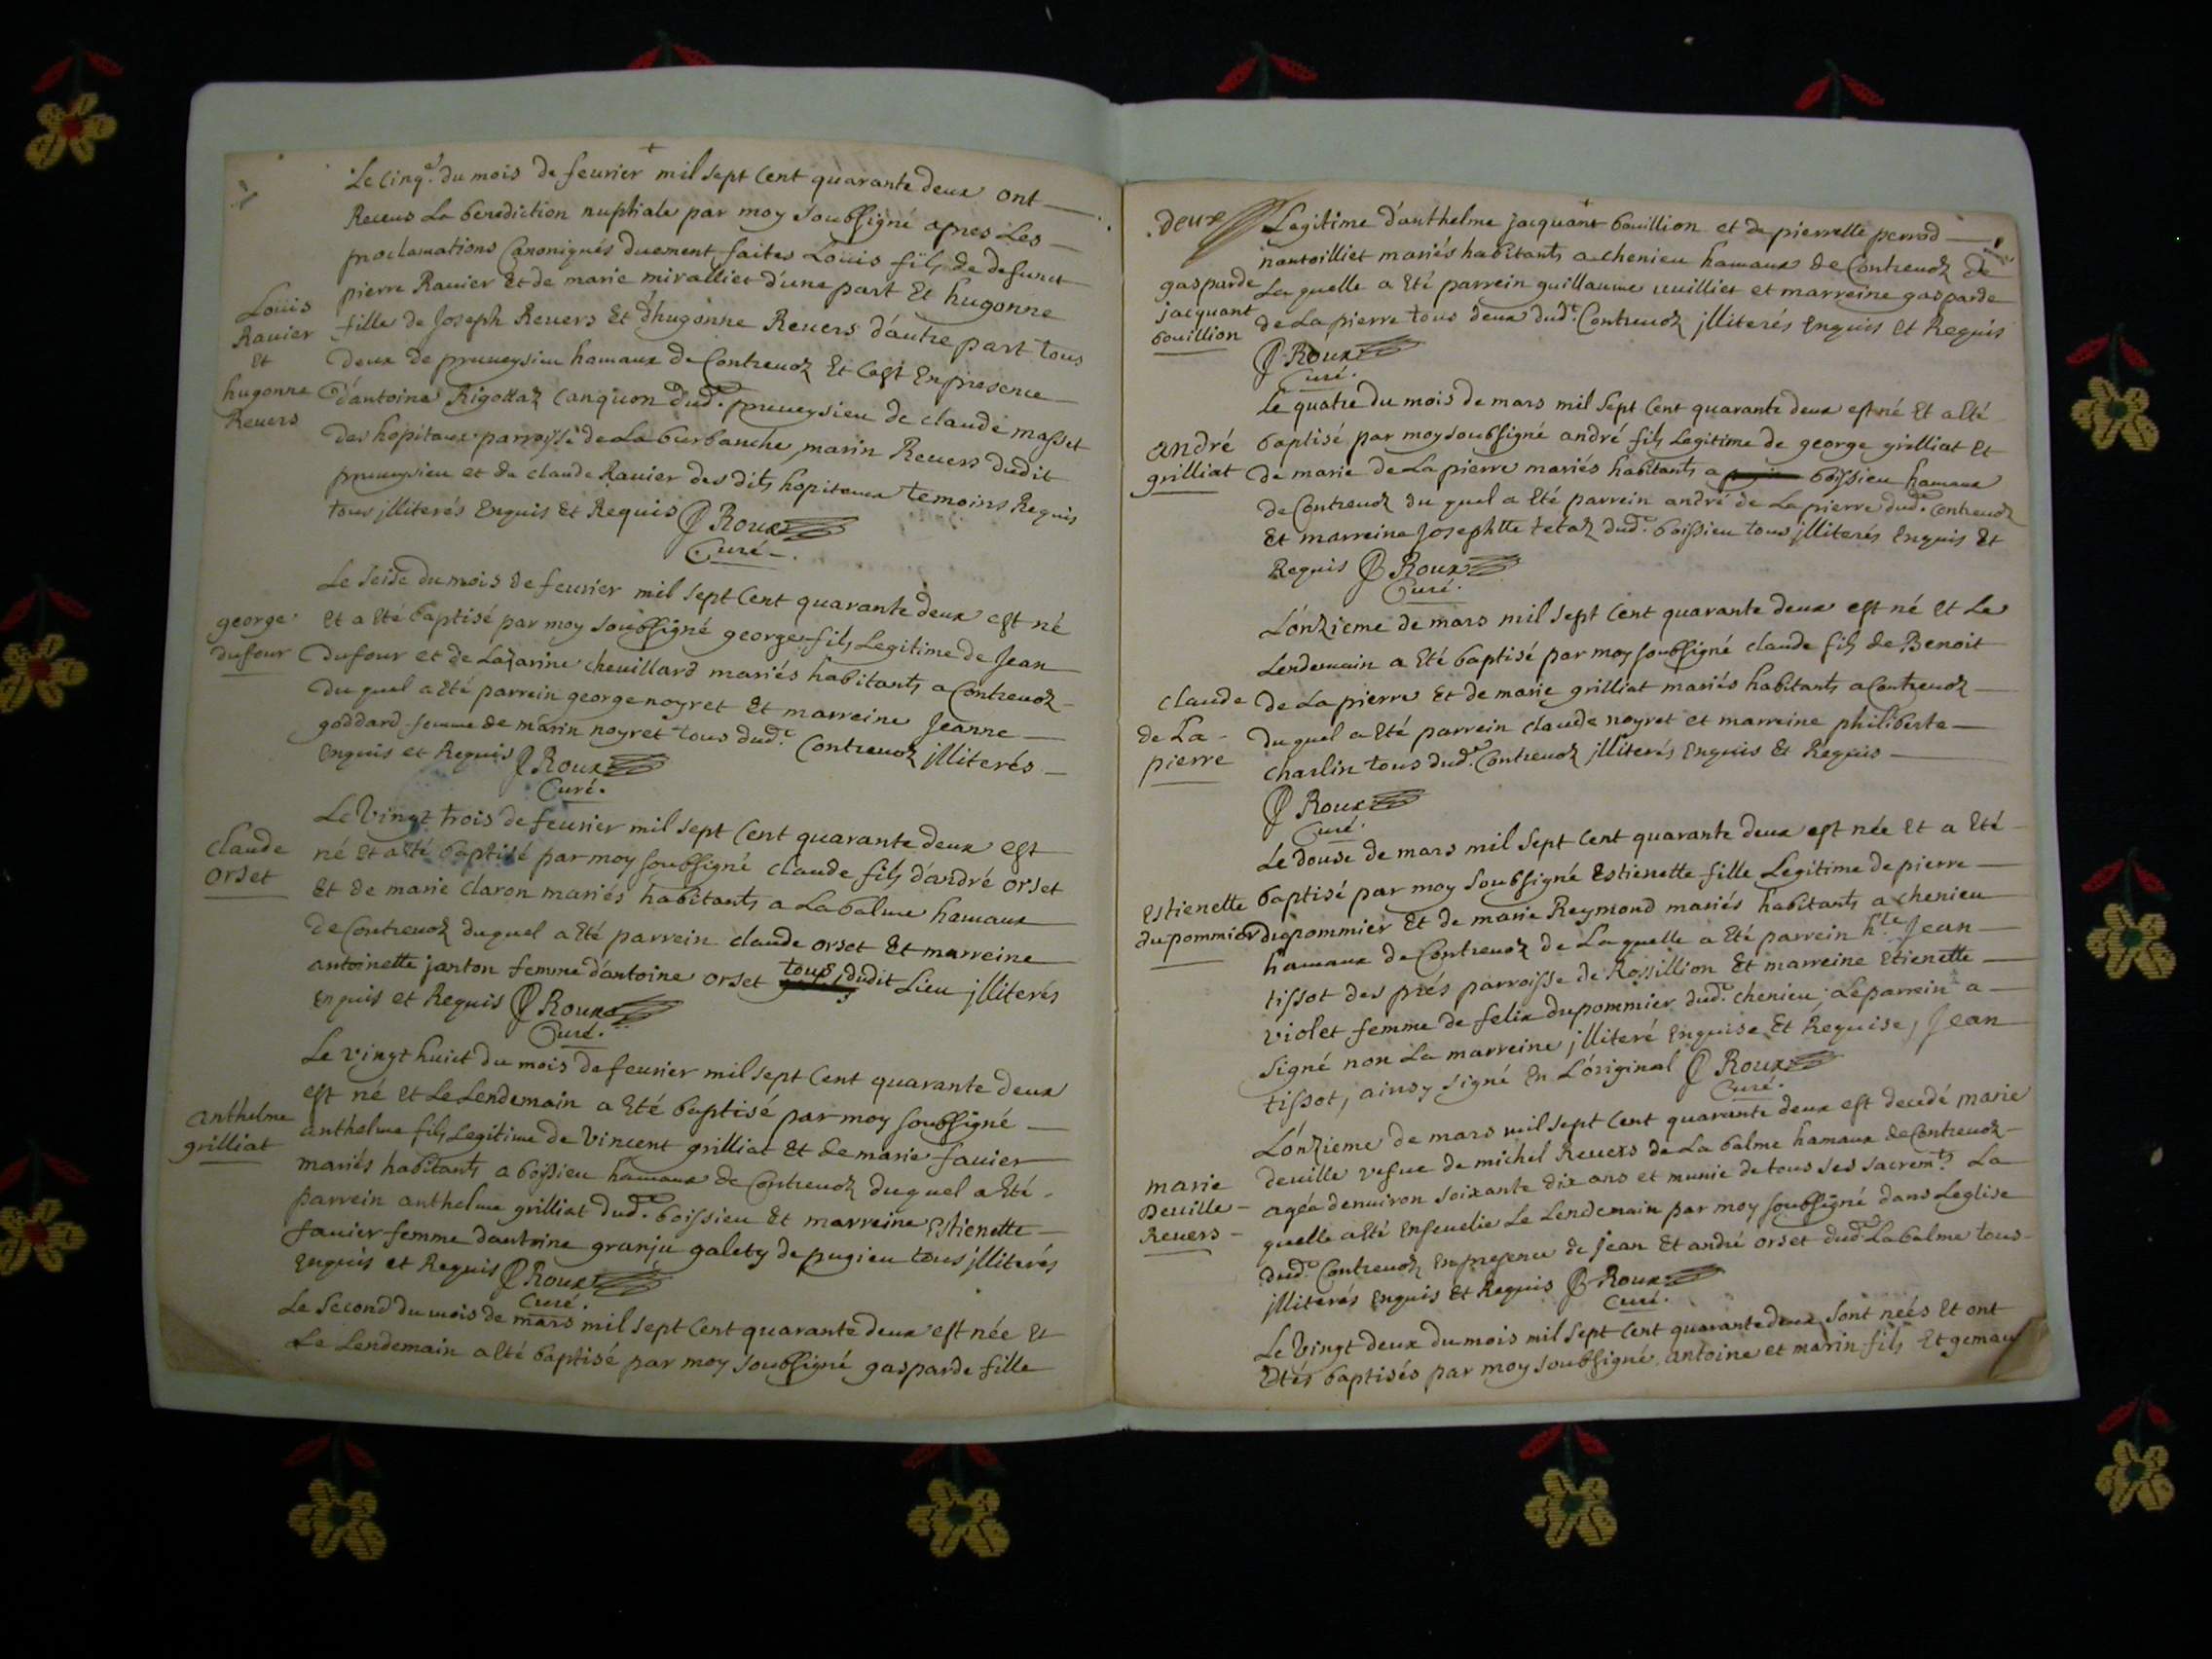 Le cinq.e du mois de feurier mil sept Cent quarante deux ont
Receus La benediction nuptiale par moy soubsigné apres Les
proclamations Canoniqués duement faites Loüis fils de defunct
pierre Rauier et de marie miralliet d'une part Et hugonne
fille de Joseph Reuers Et d'hugonne Reuers d'autre part tous
deux de pruueysieu hamaux de Contreuoz Et C'est En presence
d'antoine Rigottaz Canquon dud.e prueysieu de claude masset
des hopitaux parroisse de La burbanche, marin Reuers dudit
prueysieu et de claude Rauier des dits hopitaux temoins Requis
tous jlliterés Enquis Et Requis Roux
Curé
Loüis
Rauier
Et
hugonne
Reuers
Le seise du mois de feurier mil sept Cent quarante deux est né
Et a Eté baptisé par moy soubsigné george fils Legitime de Jean
dufour et de Lazarine cheuillard mariés habitants a Contreuoz
du quel a Eté parrein george noyret Et marreine Jeanne
goddard femme de marin noyret tous dud.e Contreuoz jlliterés
Enquis et Requis Roux
Curé.
george
dufour
Le Vingt trois de feurier mil sept Cent quarante deux est
né Et a Eté baptisé par moy soubsigné claude fils d'andré orset
Et de marie claron mariés habitants a La balme hamaux
de Contreuoz duquel a Eté parrein claude orset Et marreine
antoinette janton femme d'antoine orset tous dudit Lieu jlliterés
Enquis et Requis Roux
Curé.
claude
orset
Le vingt huict du mois de feurier mil sept Cent quarante deux
est né et Le Lendemain a Eté baptisé par moy soubsigné
anthelme fils Legitime de Vincent grilliat Et de marie fauier
mariés habitants a boissieu hamaux de Contreuoz duquel a Eté
parrein anthelme grilliat dud.e boissieu Et marreine Estienette
fauier femme dantoine granju galety de pugieu tous jlliterés
Enquis et Requis Roux
Curé.
anthelme
grilliat
Le second du mois de mars mil sept Cent quarante deux est née Et
Le Lendemain a Eté baptisé par moy soubsigné gasparde fille
deux
Legitime d'anthelme jacquant bouillion et de pierrette perrod
nantoilliet mariés habitants a chenieu hamaux de Contreuoz de
La quelle a Eté parrein guillaume uuilliet et marreine gasparde
de La pierre tous deux dud.e Contreuoz jlliterés Enquis Et Requis
Roux
Curé.
gasparde
jacquant
bouillion
Le quatre du mois de mars mil sept Cent quarante deux est né Et a Eté
baptisé par moy soubsigné andré fils Legitime de george grilliat Et
de marie de La pierre mariés habitants a boissieu hamaux
de Contreuoz du quel a Eté parrein andré de La pierre dud.e Contreuoz
Et marreine Josephtte tetaz dud.e boissieu tous jlliterés Enquis Et
Requis Roux
Curé.
andré
grilliat
L'onzieme de mars mil sept Cent quarante deux est né et Le
Lendemain a Eté baptisé par moy soubsigné claude fils de Benoit
de La pierre Et de marie grilliat mariés habitants a Contreuoz
duquel a Eté parrein claude noyret et marreine philiberte
charlin tous dud.e Contreuoz jlliterés Enquis Et Requis
Roux
Curé.
claude
de La
pierre
Le douse de mars mil sept Cent quarante deux est née Et a Eté
baptisé par moy soubsigné Estienette fille Legitime de pierre
dupommier Et de marie Reymond mariés habitants a chenieu
hamaux de Contreuoz de Laquelle a Eté parrein h.te Jean
tissot des prés parroisse de Rossillion Et marreine Etienette
violet femme de felix dupommier dud.e chenieu Le parrein a
signé non La marreine jlliteré Enquise Et Requise, Jean
tissot, ainsy signé En L'original Roux
Curé.
Estienette
dupommier
L'onzieme de mars mil sept Cent quarante deux est decedé marie
deuille vefue de michel Reuers de La balme hamaux de Contreuoz
agéa denuiron soixante dix ans et munie de tous ses sacrem.ts La
quelle a Eté Enseuelie Le Lendemain par moy soubsigné dans Leglise
dud.e Contreuoz En presence de jean Et andré orset dud.e La balme tous
jlliterés Enquis Et Requis Roux
Curé.
marie
Deuille
Reuers
Le Vingt deux du mois mil sept Cent quarante deux sont neés Et ont
Etés baptisés par moy soubsigné antoine et marin fils Et gemau